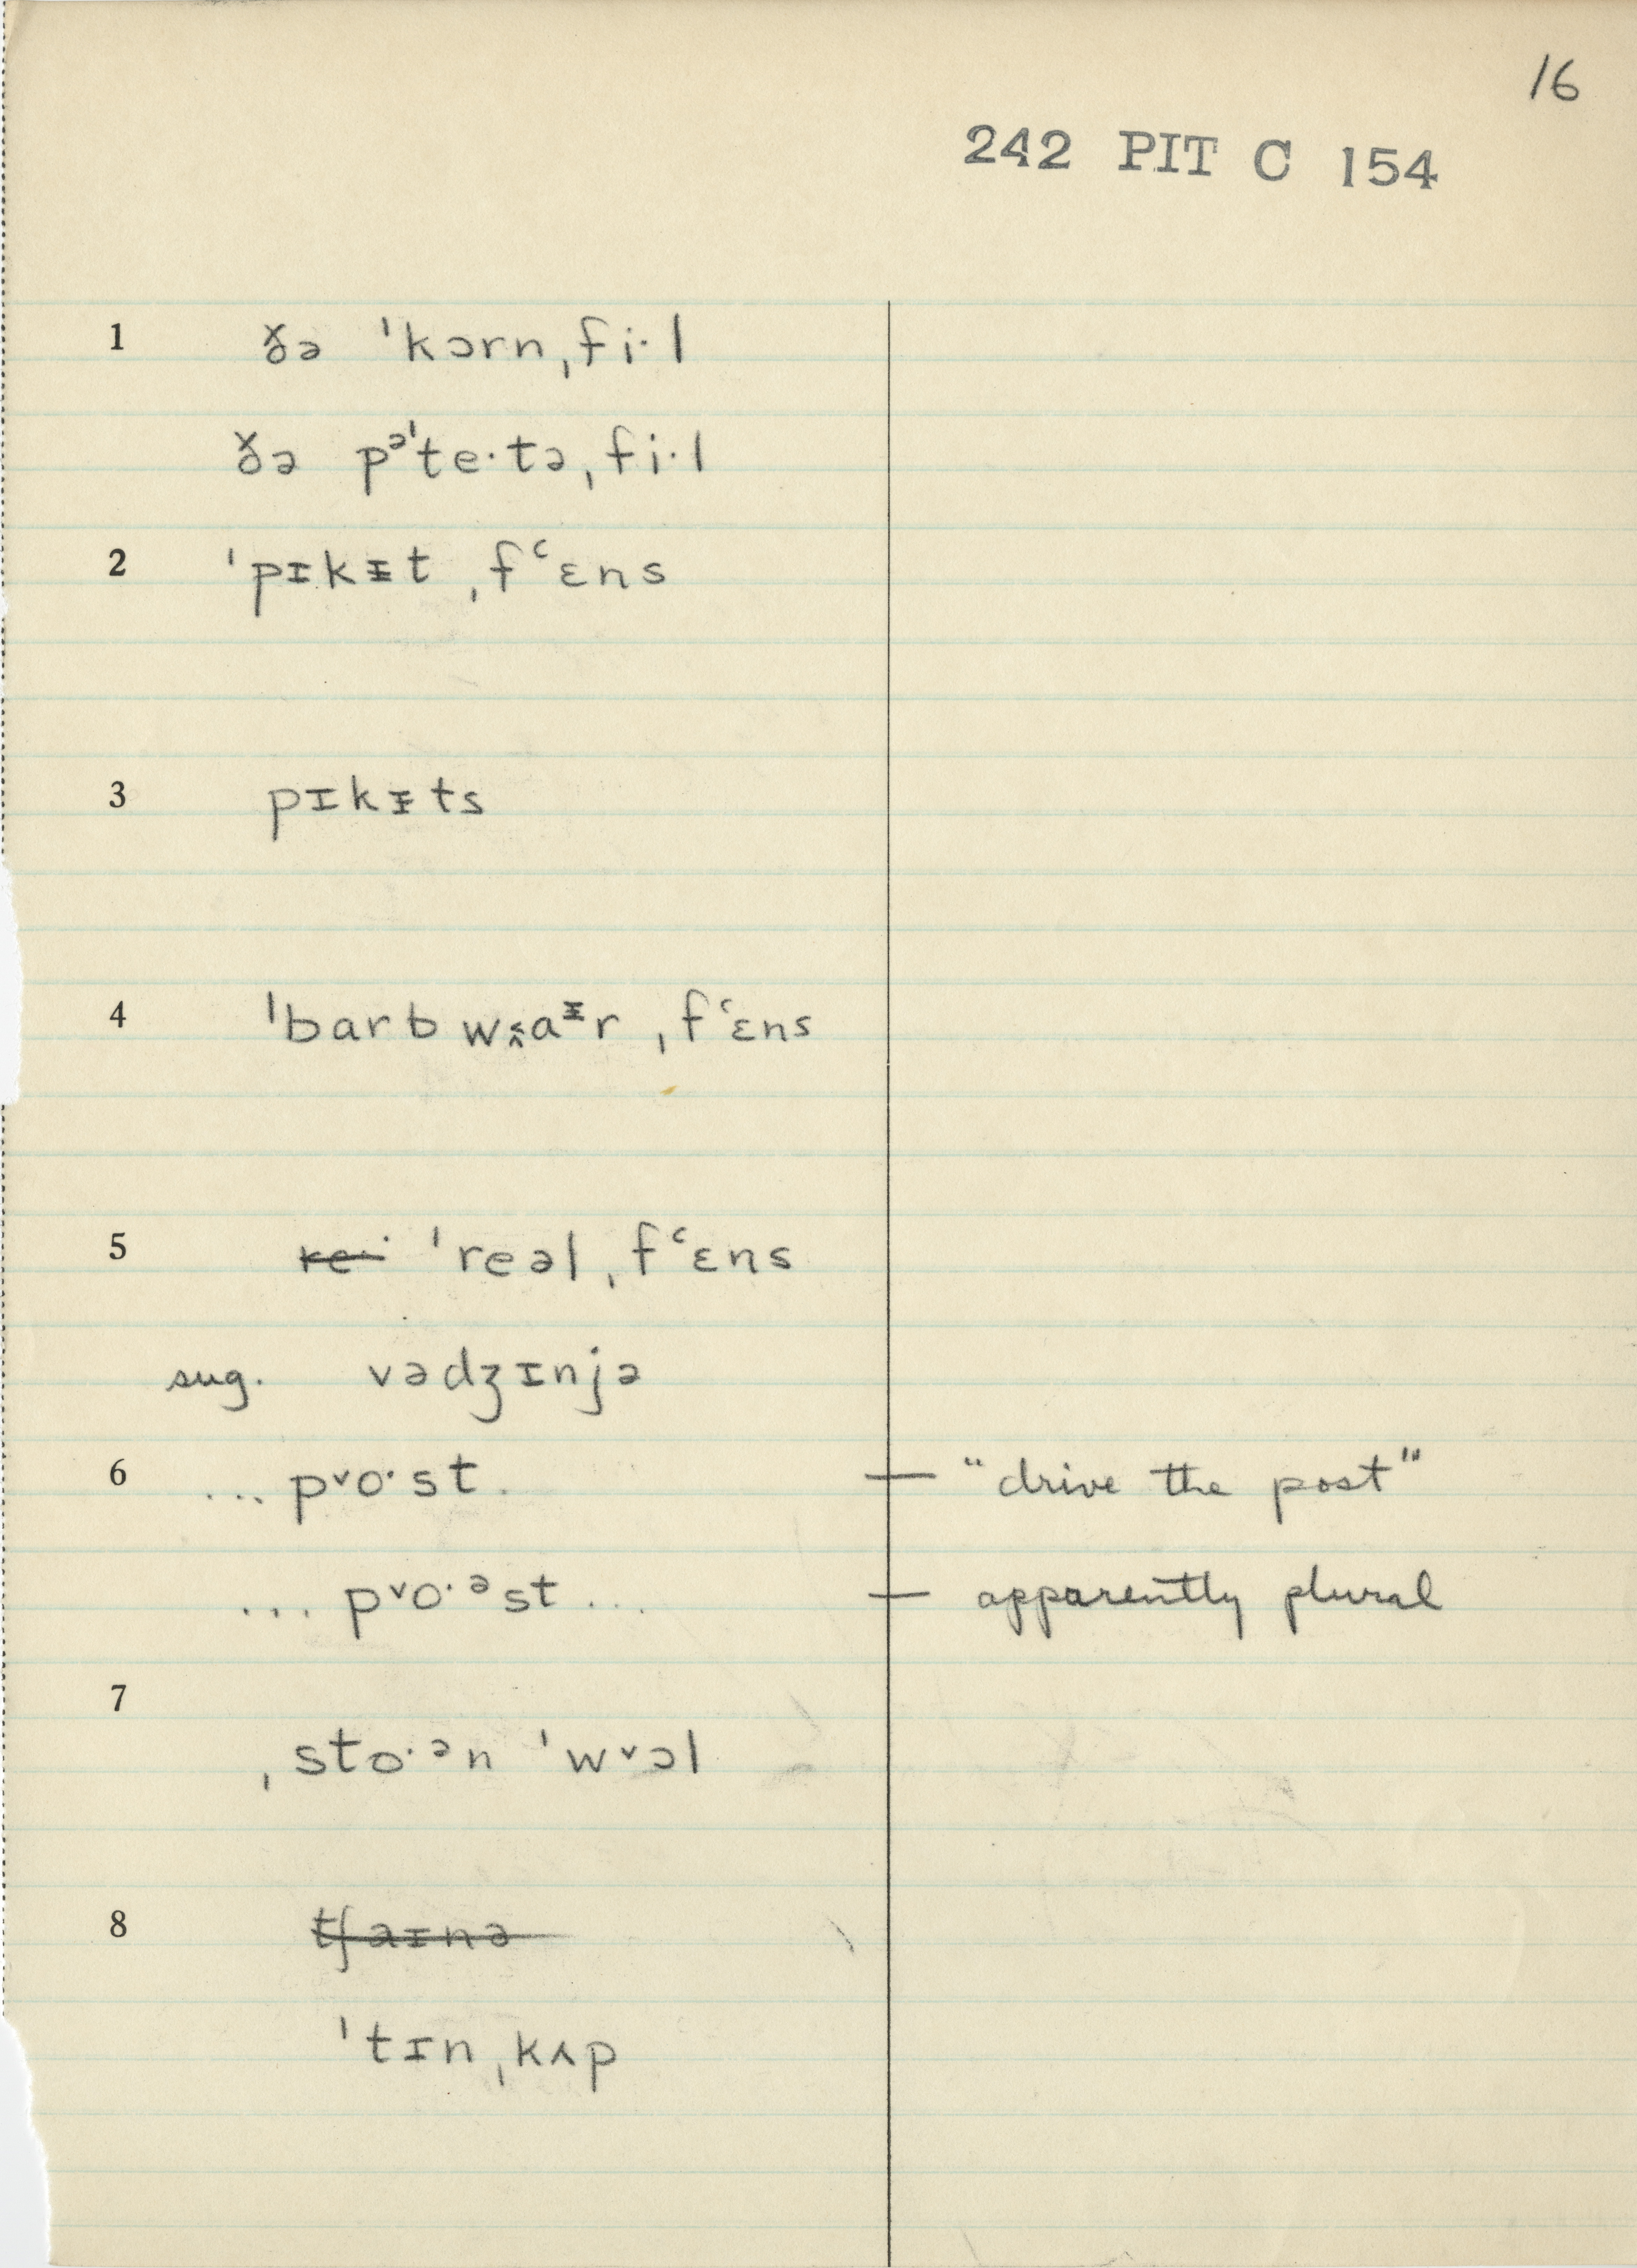 16
242 PIT C 154
1 ðə ˈkɔrnˌfi·l
ðə pᵊˈte·təˌfi·l
2 ˈpɪkᵻt ˌf˂ɛns
3 pɪkᵻts
4 ˈbarb wa^ᵻr ˌf˂ɛns
5 re· ˈreəlˌf˂ɛns
sug. vədʒɪnjə
6 ... pᵛo·st. — "drive the post"
... pᵛo·ᵊst ... — apparently plural
7
ˌsto·ᵊn ˈwᵛɔl
8 tʃaɪnə
ˈtɪnˌkʌp